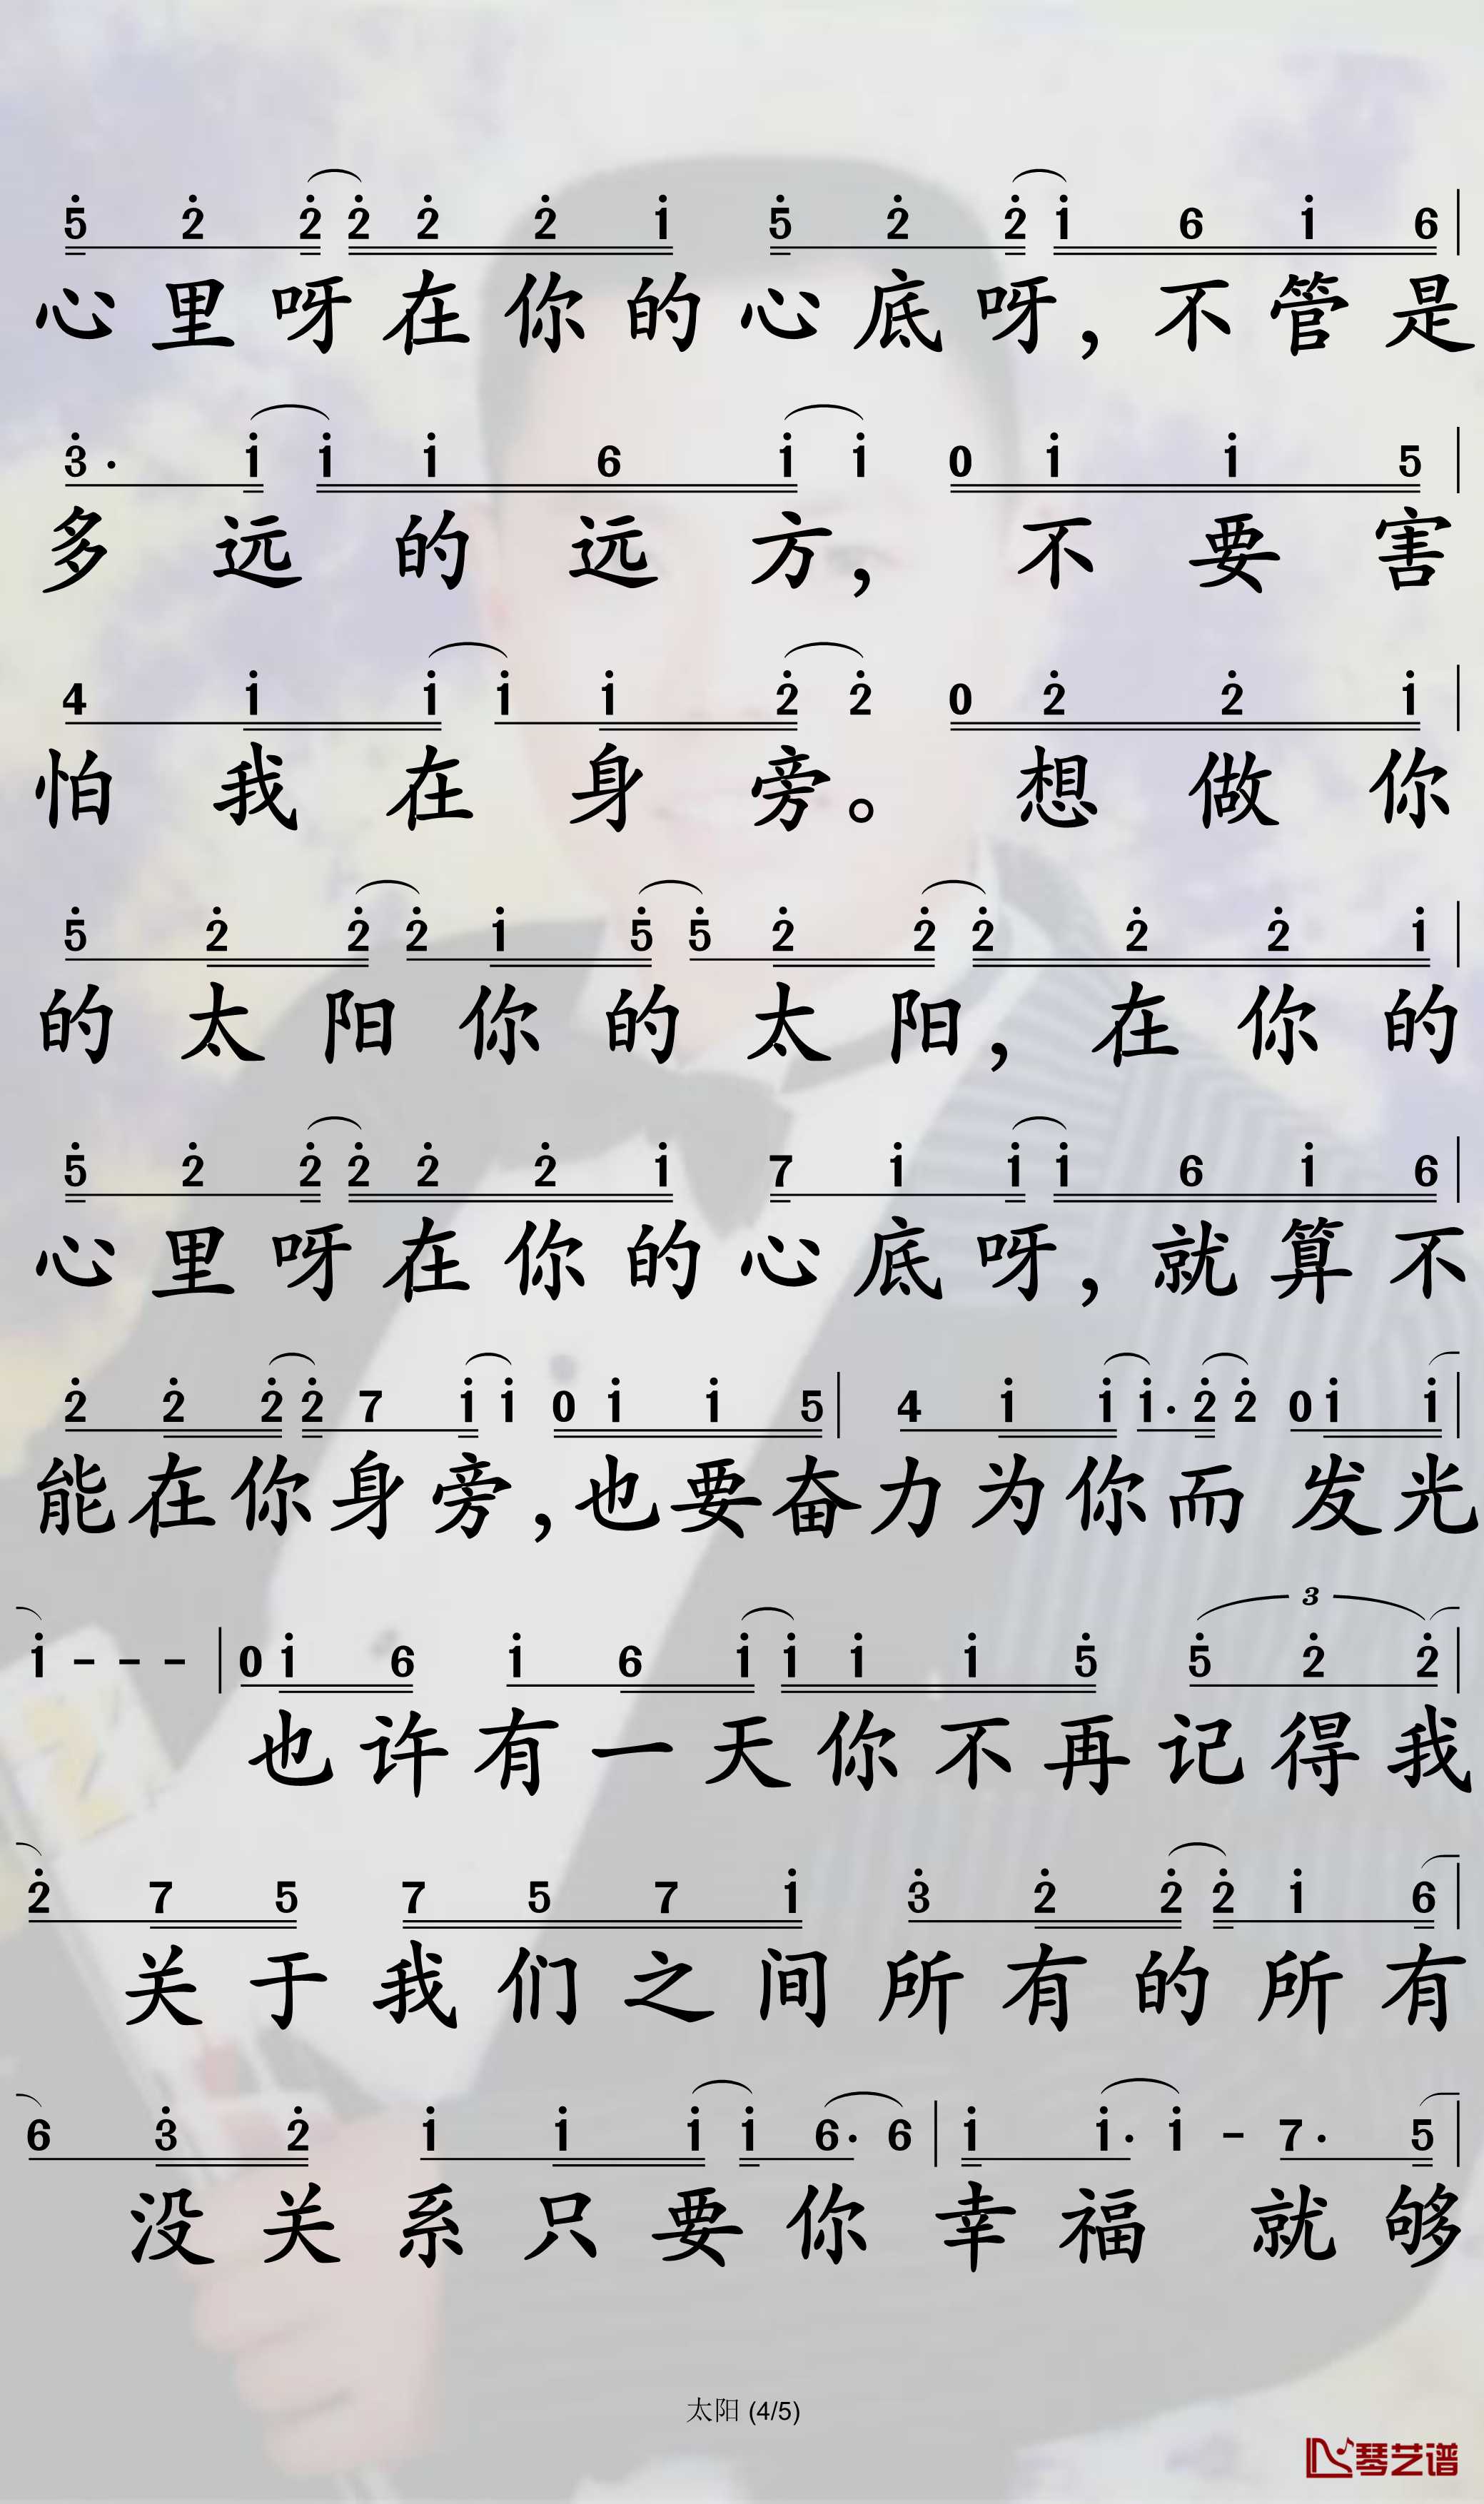 5 2 2 2 2 2 1 5 2 2 1 6 1 6
心里呀在你的心底呀，不管是
3· 1 1 1 6 1 1 0 1 1 5
多远的远方，不要害
4 1 1 1 1 2 2 0 2 2 1
怕我在身旁。想做你
5 2 2 2 1 5 5 2 2 2 2 2 1
的太阳你的太阳，在你的
5 2 2 2 2 2 1 7 1 1 1 6 1 6
心里呀在你的心底呀，就算不
2 2 2 2 7 1 1 0 1 1 5 4 1 1 1· 2 2 0 1 1
能在你身旁，也要奋力为你而发光
3
1 - - - 0 1 6 1 6 1 1 1 1 5 5 2 2
也许有一天你不再记得我
2 7 5 7 5 7 1 3 2 2 2 1 6
关于我们之间所有的所有
6 3 2 1 1 1 1 6· 6 1 1· 1 - 7· 5
没关系只要你幸福就够
太阳 (4/5)
琴艺谱